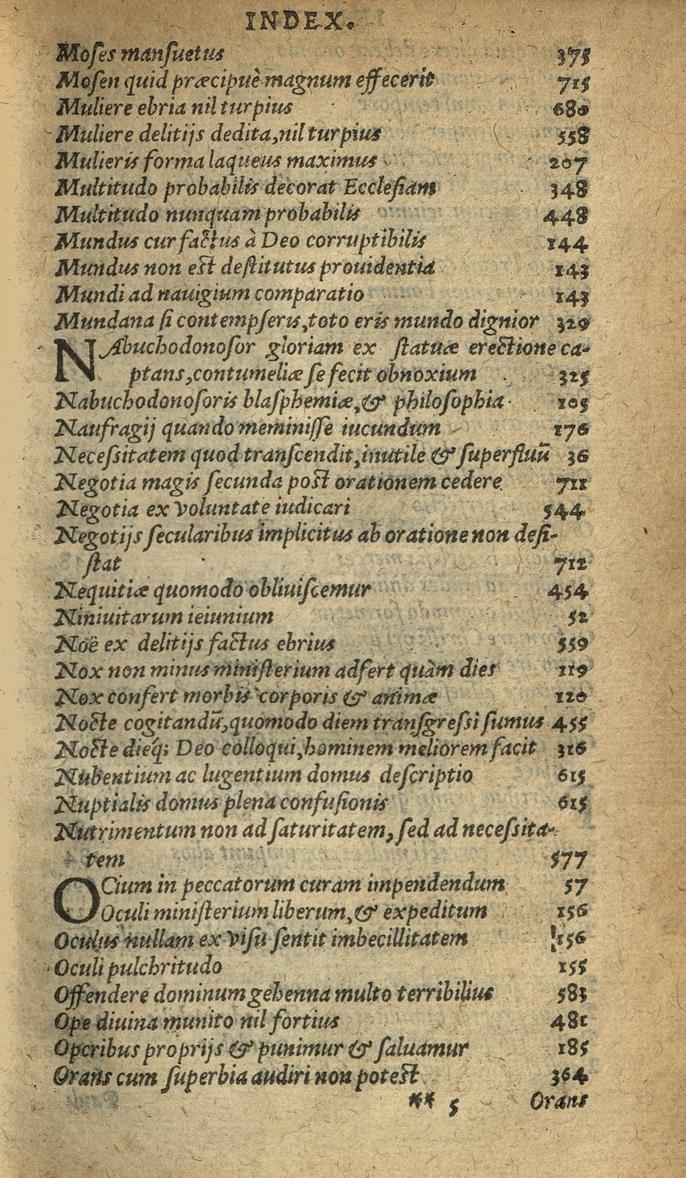 INDEX.
Moſes manſuetus 375
Moſen quid præcipuè magnum effecerit 715
Muliere ebria nil turpius 680
Muliere delitijs dedita, nil turpius 558
Mulieris forma laqueus maximus 207
Multitudo probabilis decorat Eccleſiam 348
Multitudo nunquam probabilis 448
Mundus cur factus à Deo corruptibilis 144
Mundus non est deſtitutus prouidentia 143
Mundi ad nauigium comparatio 143
Mundana ſi contempſeris, toto eris mundo dignior 329
NAbuchodonoſor gloriam ex ſtatuæ erectione ca-
ptans, contumeliæ ſe fecit obnoxium 325
Nabuchodonoſoris blaſphemiæ, & philoſophia 105
Naufragij quando meminiſſe iucundum 176
Neceſſitatem quod tranſcendit, inutile & ſuperfluū 36
Negotia magis ſecunda post orationem cedere 711
Negotia ex voluntate iudicari 544
Negotijs ſecularibus implicitus ab oratione non deſi-
ſtat 712
Nequitiæ quomodo obliuiſcemur 454
Niniuitarum ieiunium 52
Noë ex delitijs factus ebrius 559
Nox non minus miniſterium adfert quàm dies 119
Nox confert morbis corporis & animæ 120
Nocte cogitandū, quomodo diem tranſgreſſi ſumus 455
Nocte dieq́; Deo colloqui, hominem meliorem facit 316
Nubentium ac lugentium domus deſcriptio 615
Nuptialis domus plena confuſionis 615
Nutrimentum non ad ſaturitatem, ſed ad neceſſita-
tem 577
OCium in peccatorum curam impendendum 57
Oculi miniſterium liberum, & expeditum 156
Oculus nullam ex viſu ſentit imbecillitatem 156
Oculi pulchritudo 155
Offendere dominum gehenna multo terribilius 583
Ope diuina munito nil fortius 481
Operibus proprijs & punimur & ſaluamur 185
Orans cum ſuperbia audiri non potest 364
** 5 Orans